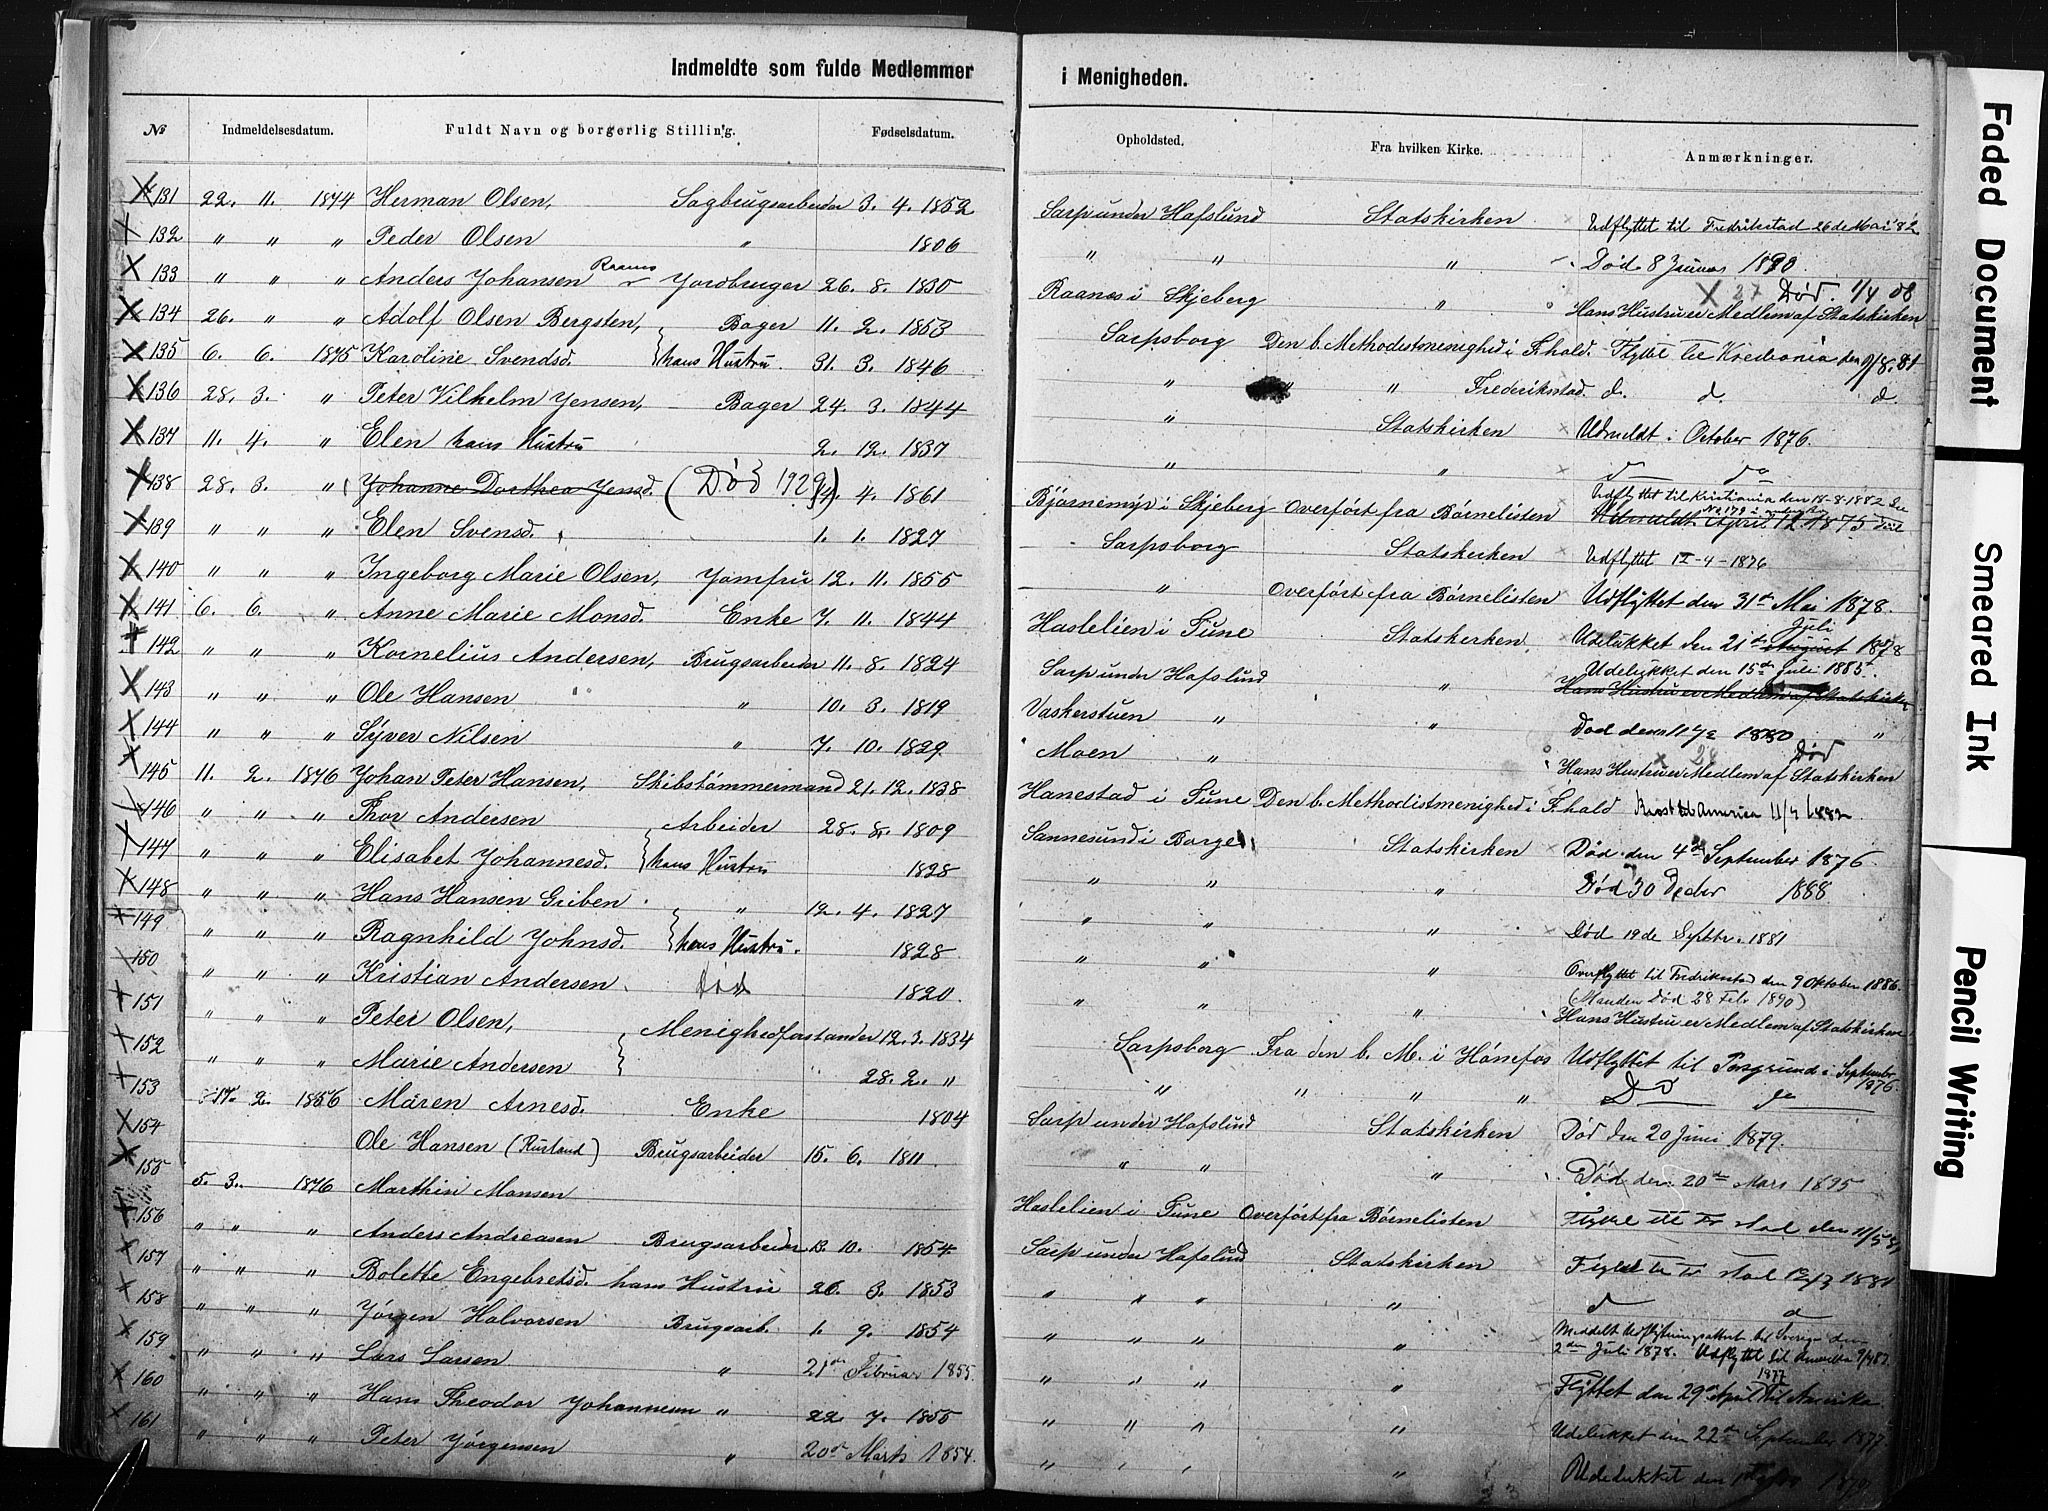 Indmeldte som fulde Medlemmer i Menigheden.
№ Indmeldelsesdatum. Fuldt Navn og borgerlig Stilling. Fødselsdatum. Opholdsted. Fra hvilken Kirke. Anmærkninger.
131 22. 11. 1874 Herman Olsen, Sagbrugsarbeider 3. 4. 1852 Sarp under Hafslund Statskirken Udflyttet til Fredrikstad 26de Mai '82
132 " " " Peder Olsen " 1806 " " " Død 8 Januar 1890.
133 " " " Anders Johansen Raanes Jordbruger 26. 8. 1830 Raanes i Skjeberg " Død. 1/4 08 Hans Hustru er Medlem af Statskirken
134 26. " " Adolf Olsen Bergsten, Bager 11. 2. 1853 Sarpsborg Den b. Methodistmenighed i Frhald. Flyttet til Kristiania den 9/8. 81
135 6. 6. 1875 Karoline Svendsd. hans Hustru. 31. 3. 1846 " " " Frederiksstad. d. d. d.
136 28. 3. " Peter Vilhelm Jensen, Bager 24. 3. 1844 " Statskirken Udmeldt i October 1876.
137 11. 4. " Elen hans Hustru 2. 12. 1837 " " d do
138 28. 3. " Johanne Dorthea Jensd. (Død 1929) 4. 4. 1861 Bjørnemyr i Skjeberg Overført fra Børnelisten Udflyttet til Kristiania den 18-8-1882
139 " " " Elen Svensd. 1. 1. 1827 Sarpsborg Statskirken Udflyttet 12-4-1876
140 " " " Ingeborg Marie Olsen, Jomfru 12. 11. 1855 " Overført fra Børnelisten Udflyttet den 31te Mai 1878.
141 6. 6. " Anne Marie Monsd. Enke 7. 11. 1844 Haslelien i Tune Statskirken. Udelukket den 21de August Juli 1878
142 " " " Kornelius Andersen, Brugsarbeider 11. 8. 1824 Sarp under Hafslund " Udelukket den 15de Juli 1885. Hans Hustru er Medlem af Statskirken
143 " " " Ole Hansen " 10. 3. 1819 Vaskerstuen " " Død den 11 1880 "
144 " " " Syver Nilsen " 7. 10. 1829 Moen " Død Hans Hustru er Medlem af Statskirken
145 11. 2. 1876 Johan Peter Hansen, Skibstømmermand 21. 12. 1838 Hanestad i Tune Den b. Methodistmenighed i Frhald Reist til America 11/4 1882
146 " " " Thor Andersen Arbeider 28. 8. 1809 Sannesund i Borge Statskirken Død den 4de September 1876
147 " " " Elisabet Johannesd. hans Hustru 1828 " " " Død 30 Decbr 1888
148 " " " Hans Hansen Griben " 12. 4. 1827 " " " Død 19de Septbr. 1881
149 " " " Ragnhild Johnsd. hans Hustru. 1828 " " " Overflyttet til Fredriksstad den 9 Oktober 1886. (Manden død 28 Febr 1890)
150 " " " Kristian Andersen Død 1820 " " " Hans Hustru er Medlem af Statskirken
151 " " " Peter Olsen, Menighedforstander 12. 3. 1834 Sarpsborg Fra den b. M. i Hønefos Udflyttet til Porsgrund i September 1876.
152 " " " Marie Andersen 28. 2. " " " " " Do do
153 17. 2. 1856 Maren Arnesd. Enke 1804 Sarp under Hafslund Statskirken Død den 20 Juni 1879.
154 Ole Hansen (Rustand) Brugsarbeider 15. 6. 1811. " " " Død den 20de Mars 1895
155 5. 3. 1876 Marthin Monsen Haslelien i Tune Overført fra Børnelisten Flyttet til Frstad den 11/5 8
156 " " " Anders Andreasen Brugsarbeider 13. 10. 1854 Sarp under Hafslund Statskirken Flyttet til Frstad 1881
157 " " " Bolette Engebretsd. hans Hustru 26. 3. 1853 " " " " d d
158 " " " Jørgen Halvorsen Brugsarb. 1. 9. 1854 " " " " Meddelt Udflytningsattest til Sverige den 2den Juli 1878. Udflyttet til Amerika 9/4 82.
159 " " " Lars Larsen " 21de Februar 1855. " " " " Flyttet den 29de April 1877 til Amerika
160 " " " Hans Theodor Johannesen " 22. 7. 1855 " " " " Udelukket den 22de September 1877
161 " " " Peter Jørgensen " 20de Marts 1854. " " " " Udelukket den
Faded Document
Smeared Ink
Pencil Writing